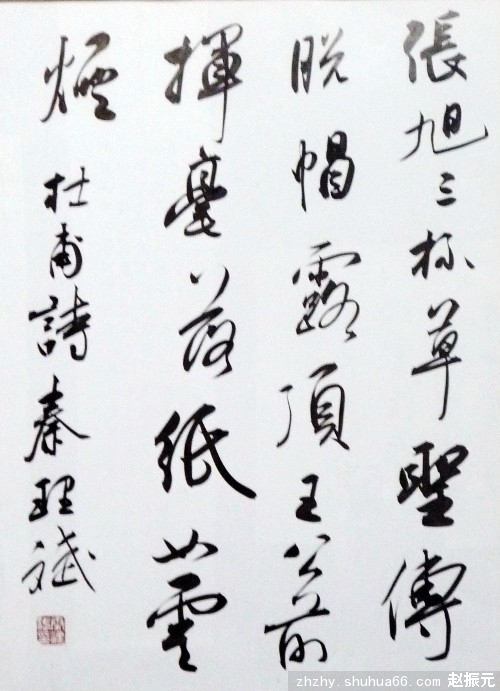 張旭三杯草聖傳
脱帽露頂王公前
揮毫落紙如雲
煙 杜甫詩 秦理斌
zhzhy.shuhua66.com 赵振元